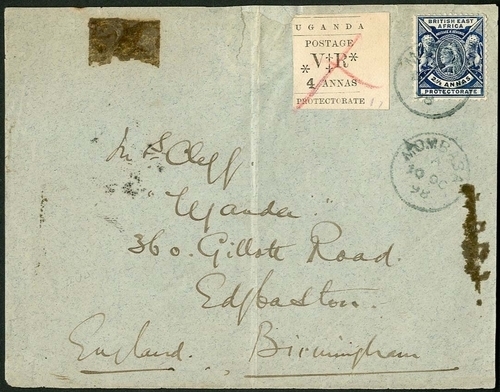 UGANDA
POSTAGE
* V‡R *
4 ANNAS
PROTECTORATE
BRITISH EAST
AFRICA
2½ ANNAS
PROTECTORATE
MOMBASA
98
Mrs Cleff
Uganda
360. Gillott Road.
Edgbaston.
England. Birmingham